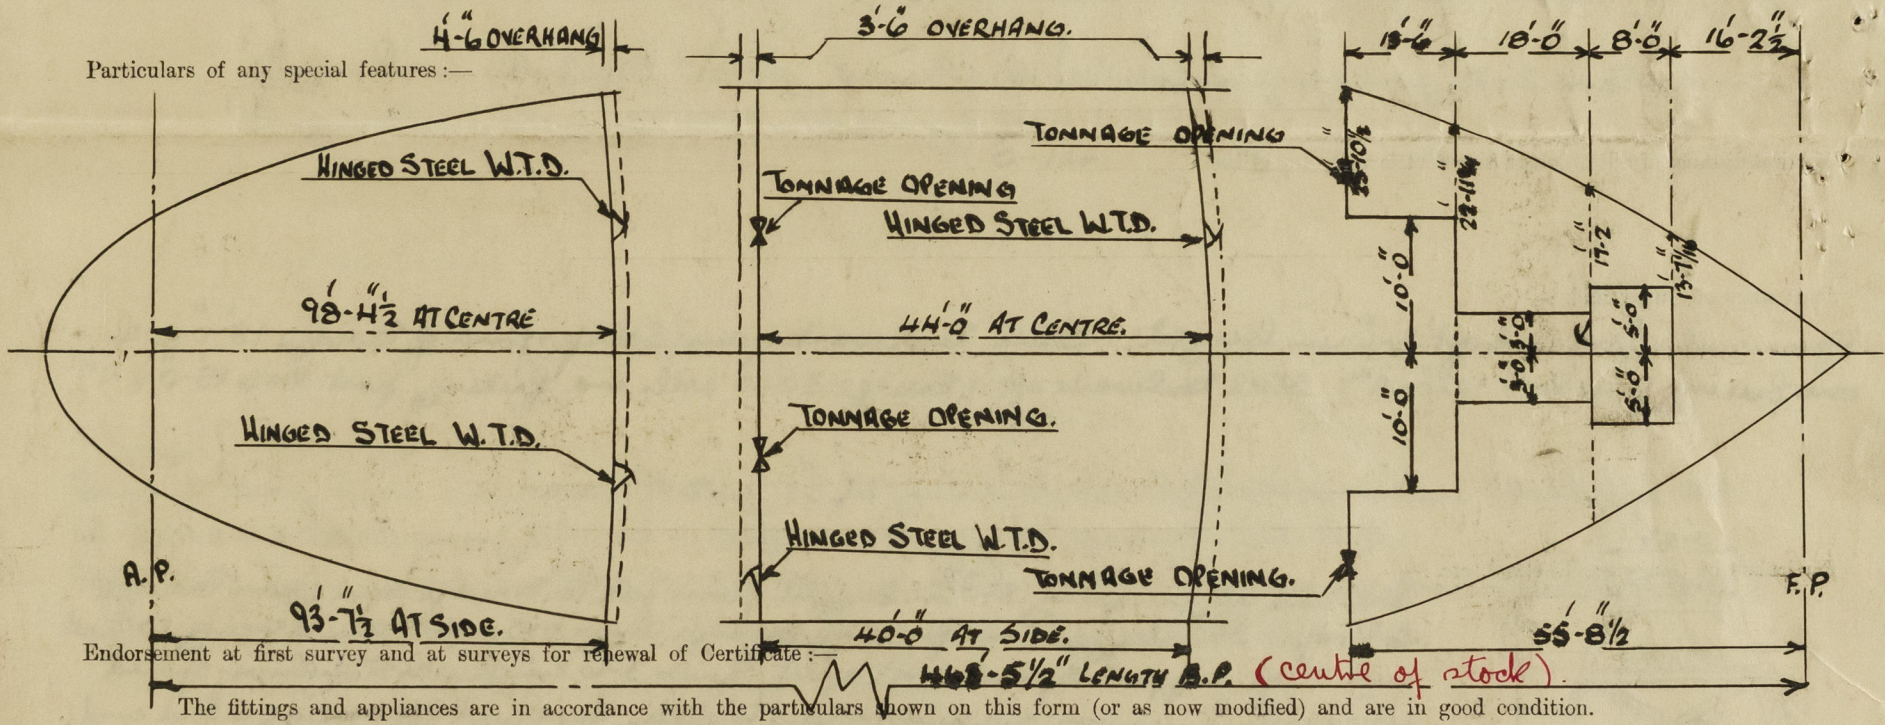 4'-6" OVERHANG
3'-6" OVERHANG.
13'-6"
18'-0"
8'-0"
16'-2½"
Particulars of any special features :—
TONNAGE OPENING
23'-10½"
HINGED STEEL W.T.D.
TONNAGE OPENING
HINGED STEEL W.T.D.
19'-2"
98'-4½" AT CENTRE
44'-0" AT CENTRE.
10'-0"
3'-0"
5'-0"
10'-0"
3'-0"
5'-0"
HINGED STEEL W.T.D.
TONNAGE OPENING.
HINGED STEEL W.T.D.
TONNAGE OPENING.
A.P.
F.P.
93'-7½" AT SIDE.
40'-0" AT SIDE.
55'-8½"
Endorsement at first survey and at surveys for renewal of Certificate :—
5½" LENGTH B.P. (centre of stock).
The fittings and appliances are in accordance with the particulars shown on this form (or as now modified) and are in good condition.